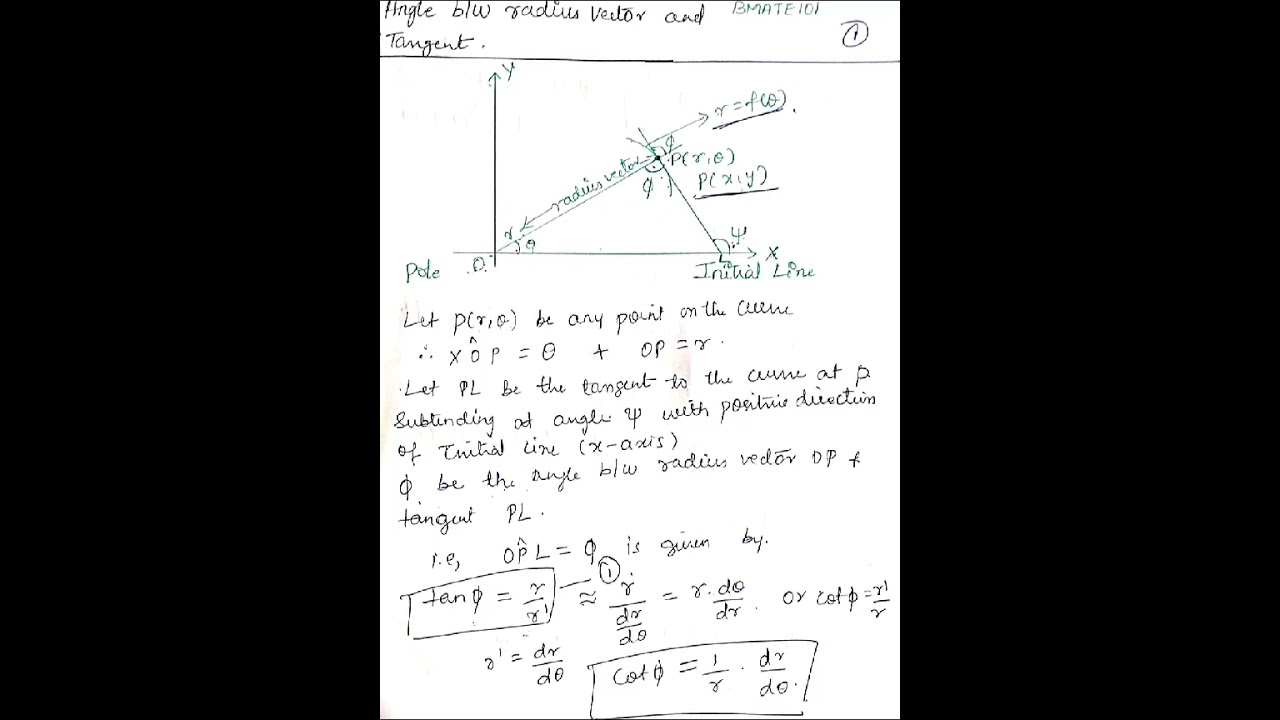 Angle b/w radius vector and BMATE101
Tangent. ①
Y
r = f(θ).
ϕ
P(r,θ)
radius vector
ϕ
P(x,y)
r
θ
ψ
X
Pole O L
Initial Line
Let p(r,θ) be any point on the curve
∴ XÔP = θ + OP = r.
Let PL be the tangent to the curve at p.
Subtending at angle ψ with positive direction
of Initial line (x-axis)
ϕ be the angle b/w radius vector OP +
tangent PL.
i.e, OP̂L = ϕ is given by.
tanϕ = r/r' — ① ≈ r/(dr/dθ) = r. dθ/dr. or cotϕ = r'/r
r' = dr/dθ cotϕ = 1/r . dr/dθ.